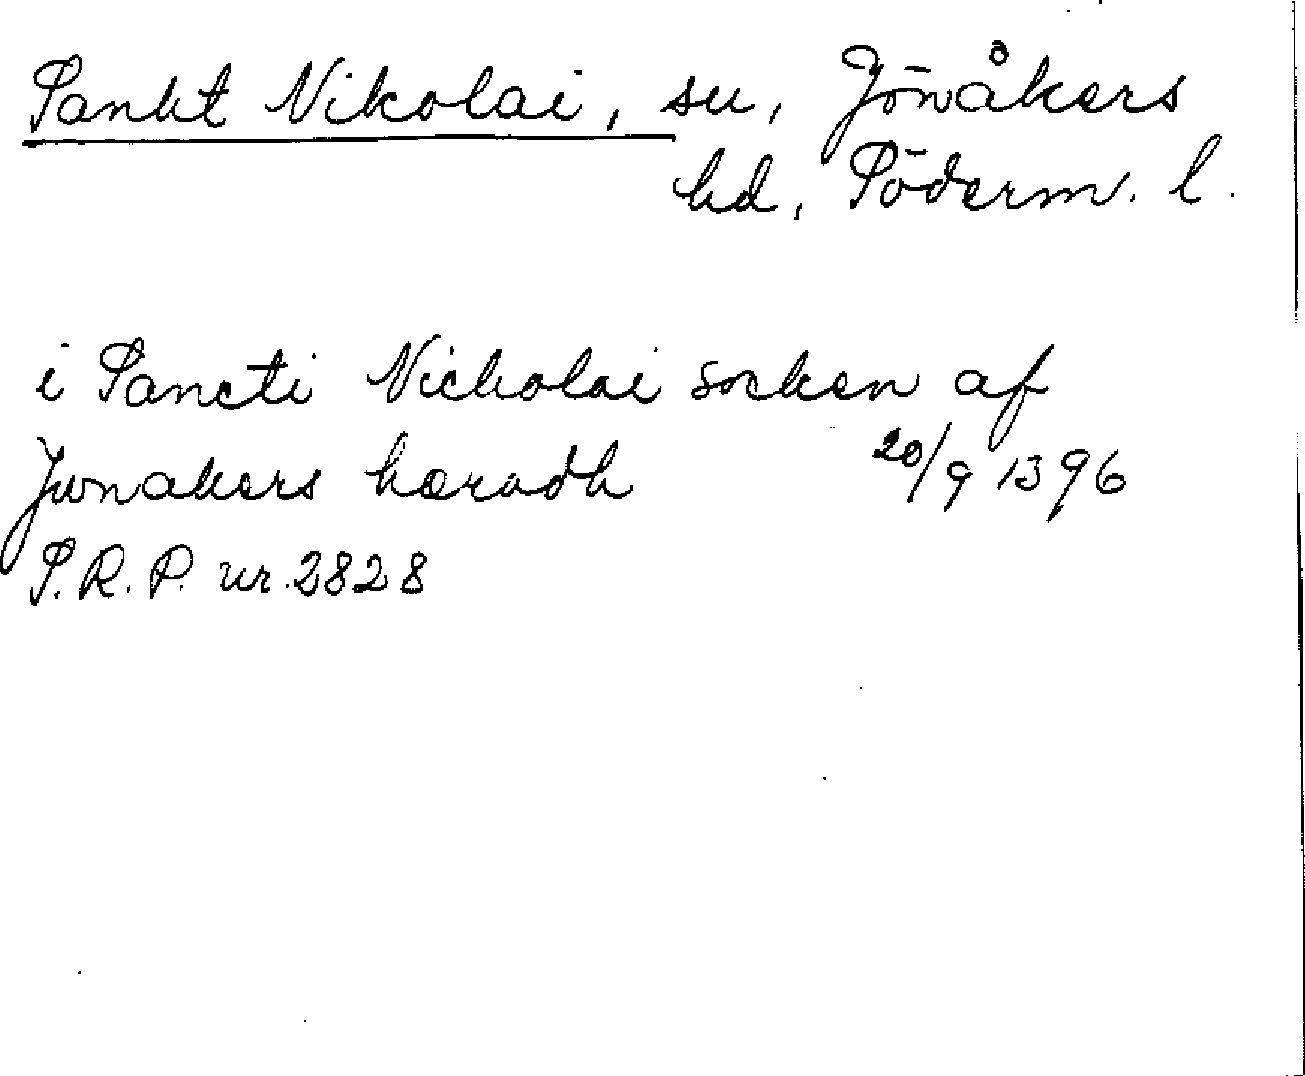 Sankt Nikolai, sn, Jönåkers
hd, Söderm. l.
i Sancti Nicholai socken af
Junakers hæradh 20/9 1396
S.R.P. nr. 2828